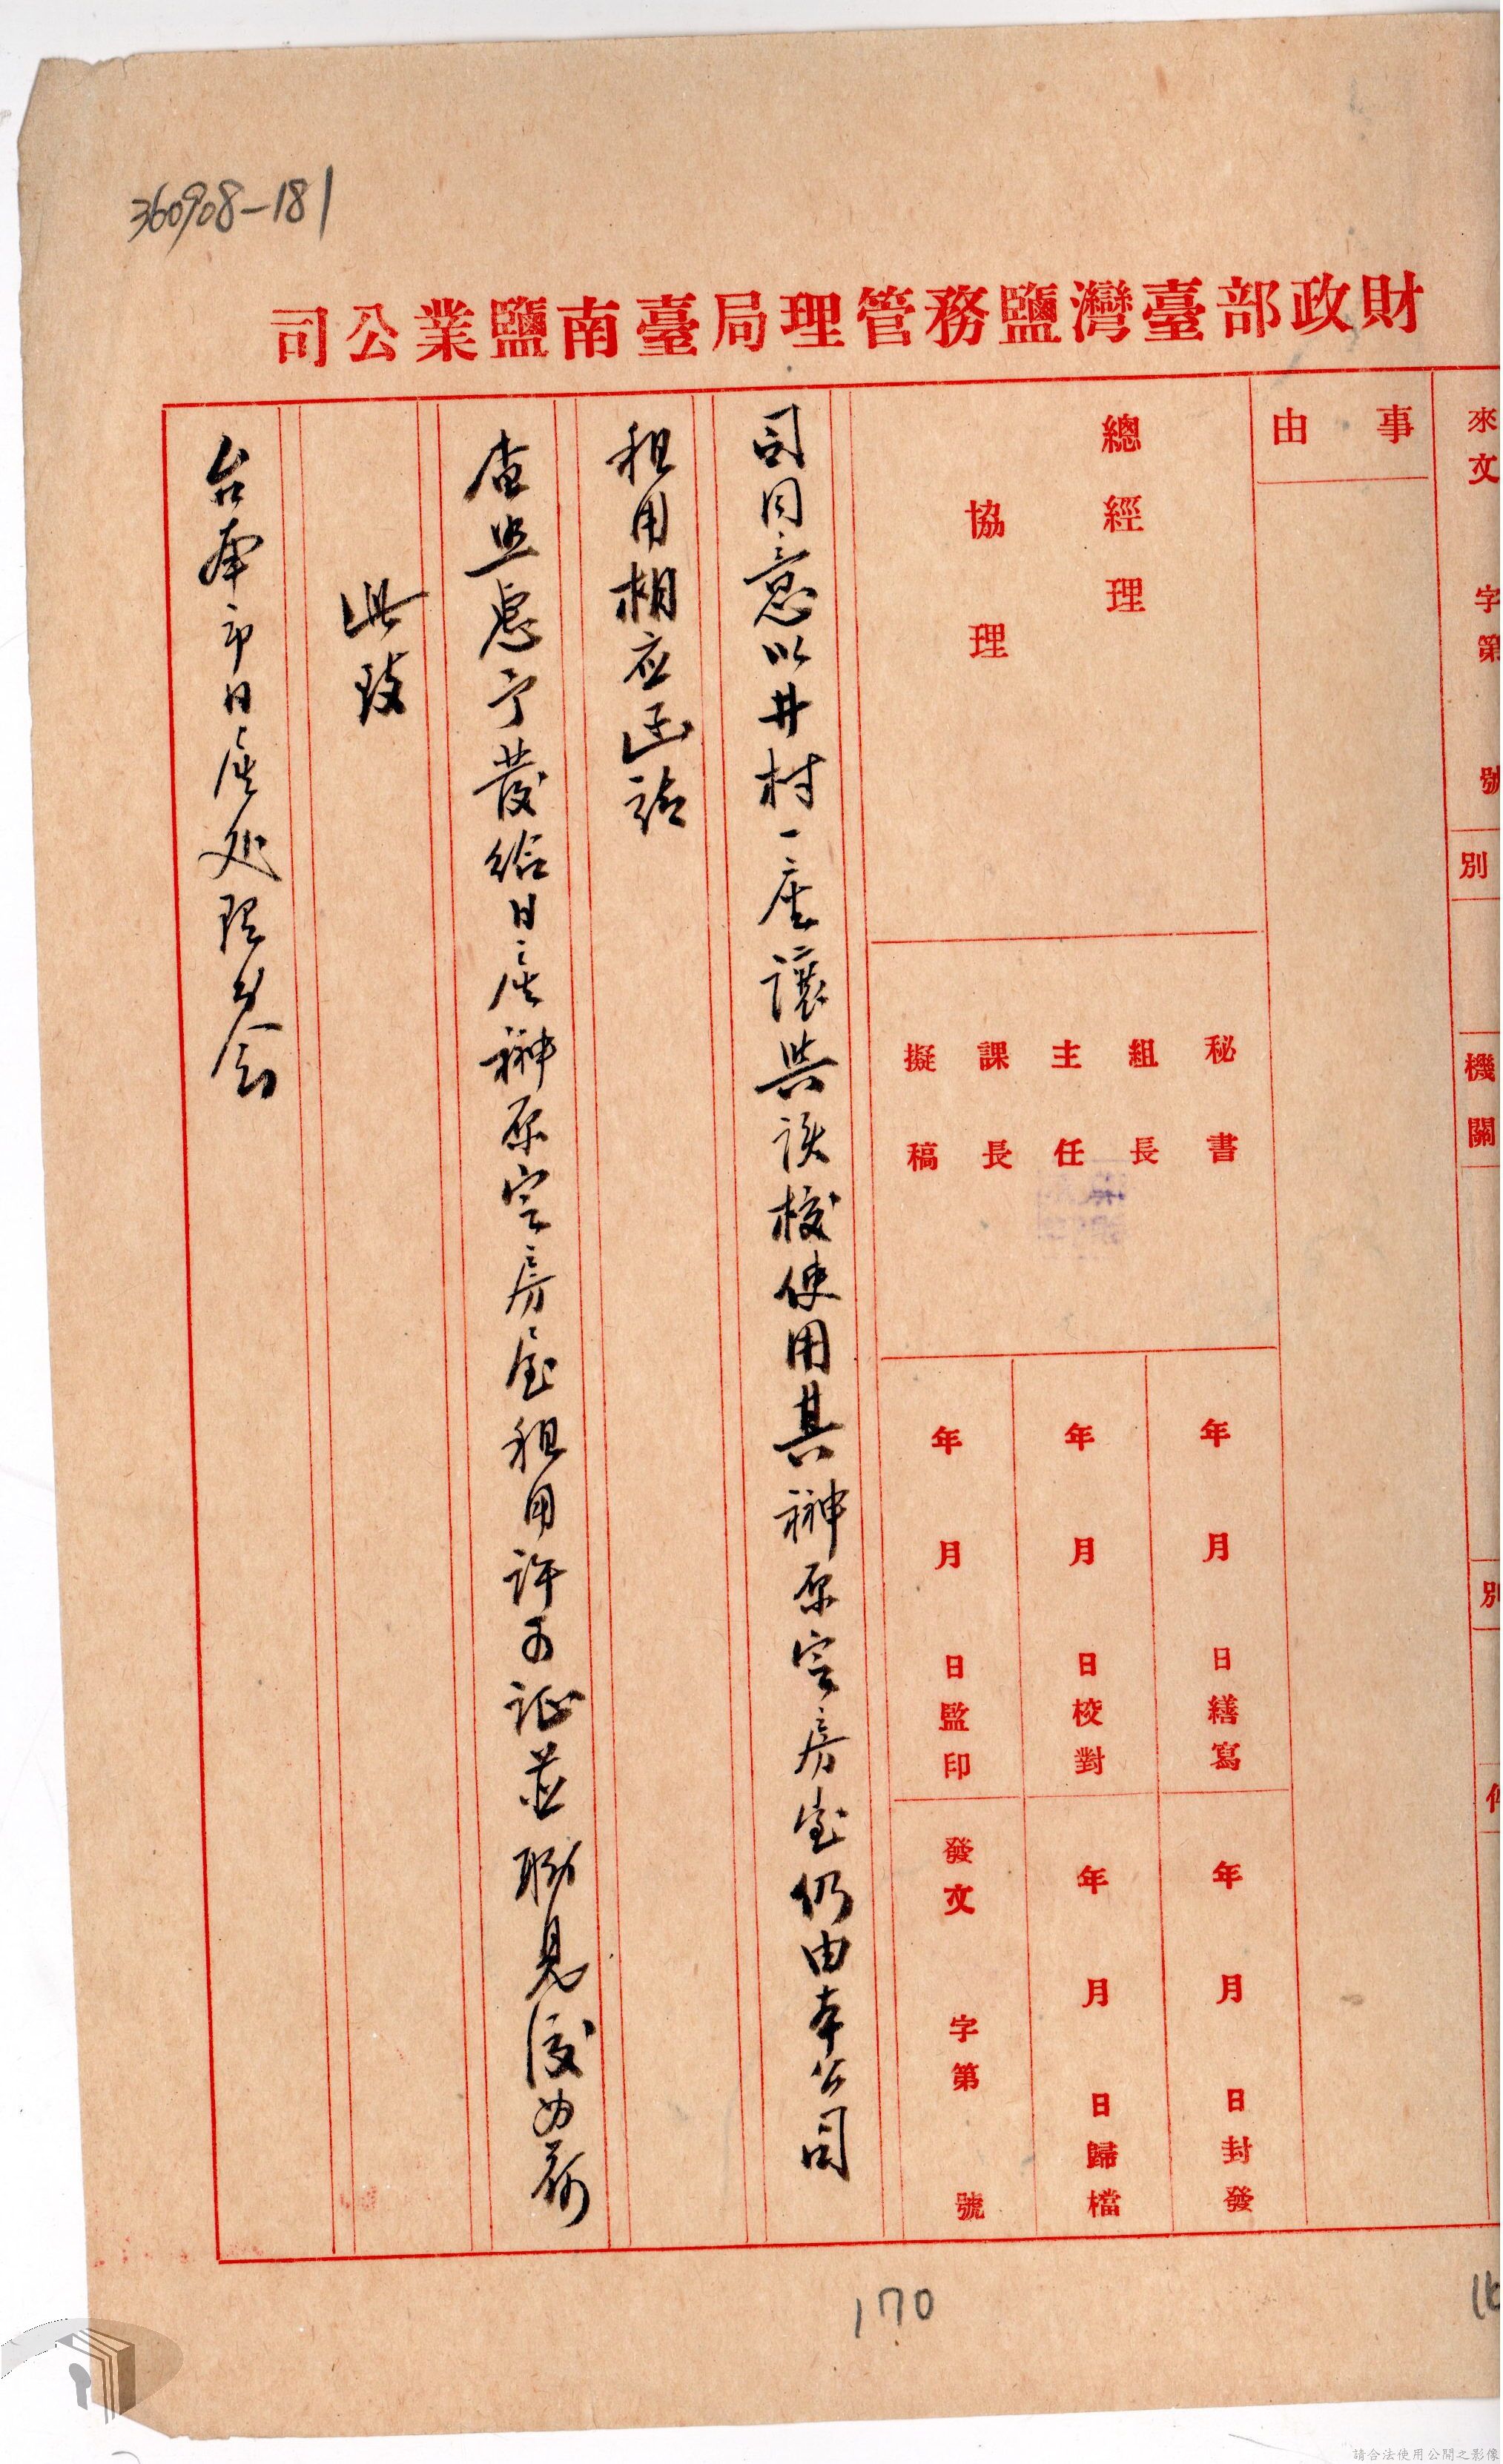 360908-181
財政部臺灣鹽務管理局臺南鹽業公司
來文 字第 號
別
機關
別
事由
總經理
協理
秘書
組長
主任
課長
擬稿
年 月 日繕寫
年 月 日校對
年 月 日監印
年 月 日封發
年 月 日歸檔
發文 字第 號
司同意以井村一座讓與該校使用其榊原宅房屋仍由本公司
租用相应函請
查照惠予發給日產榊原宅房屋租用許可証並 見復為荷
此致
台南市日產处理委会
170
請合法使用公開之影像